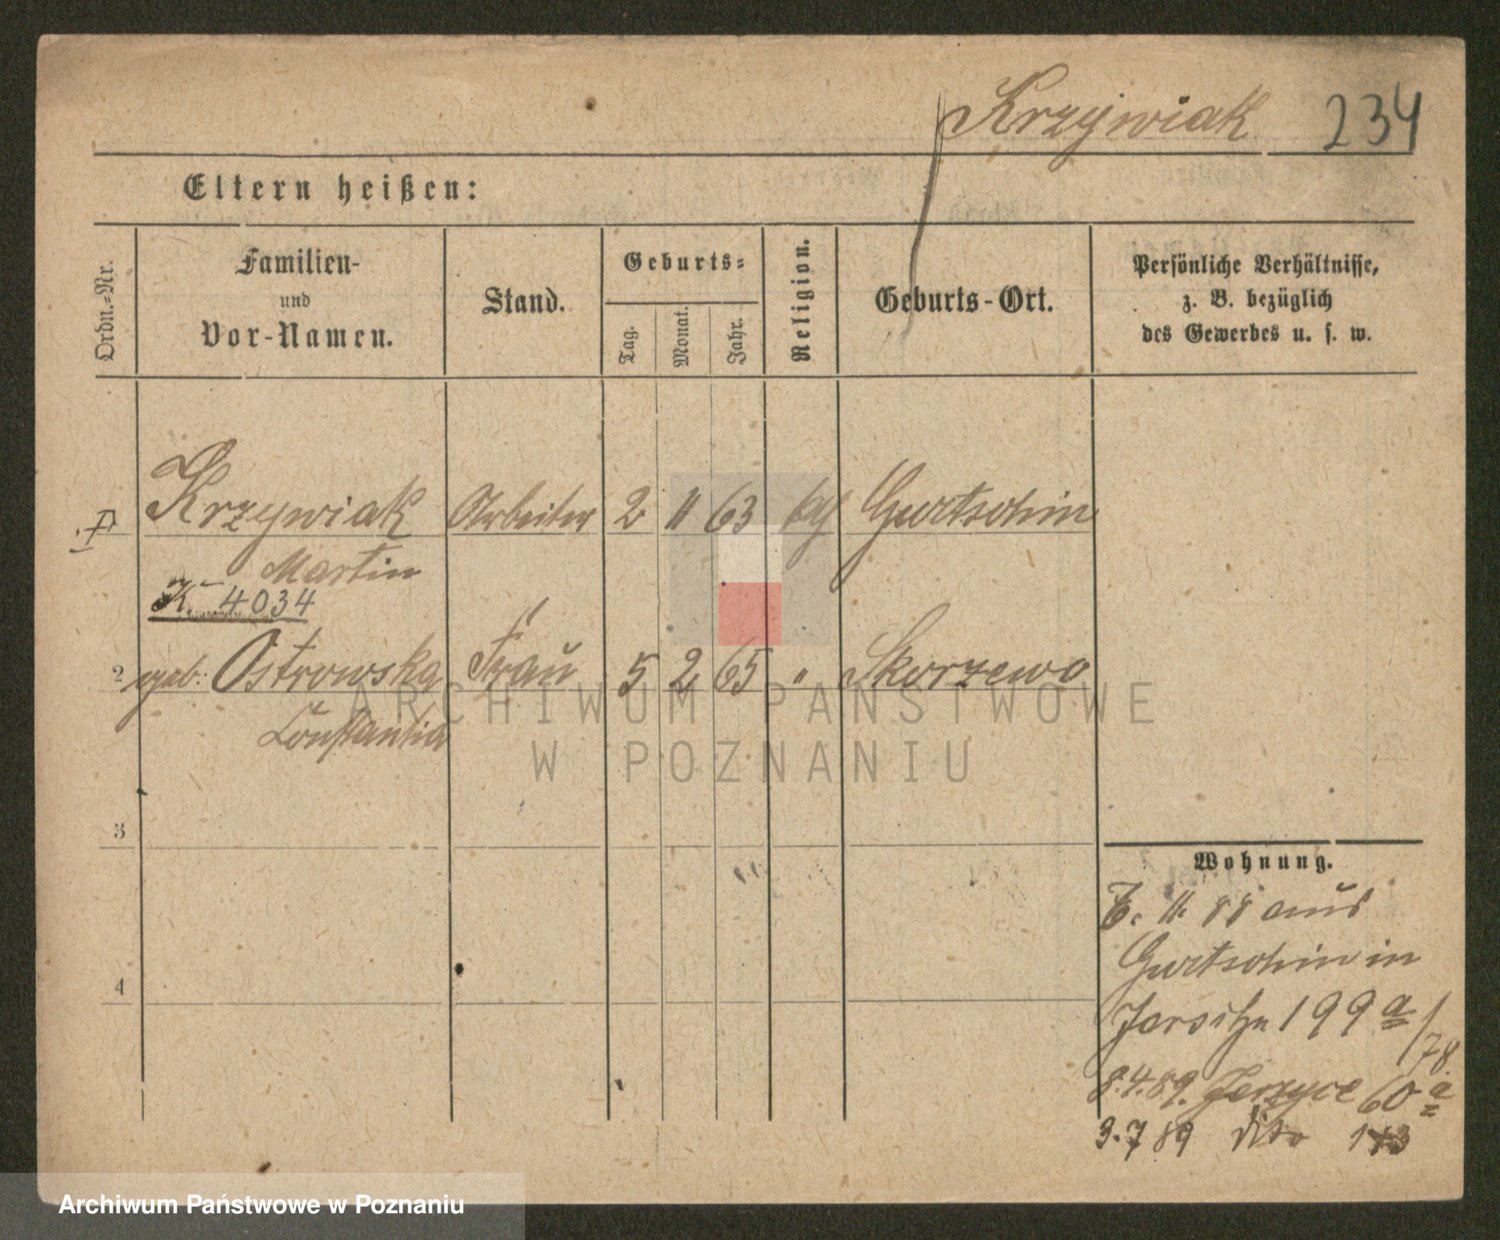 Krzywiak 234
Eltern heißen:
Ordn.-Nr.
Familien-
und
Vor-Namen.
Stand.
Geburts-
Tag.
Monat.
Jahr.
Religion.
Geburts-Ort.
Persönliche Verhältnisse,
z. B. bezüglich
des Gewerbes u. s. w.
Krzywiak Arbeiter 2 11 63 Gurtschin
Martin
K. 4034
2 geb. Ostrowska Frau 5 2 65 " Skorzewo
Constantia
ARCHIWUM PAŃSTWOWE
W POZNANIU
3
4
Wohnung.
11. 88 aus
Gurtschin in
Jersitz 199 a/78.
8.4.89. Jerzyce 60 a
3.7 89 dito
Archiwum Państwowe w Poznaniu